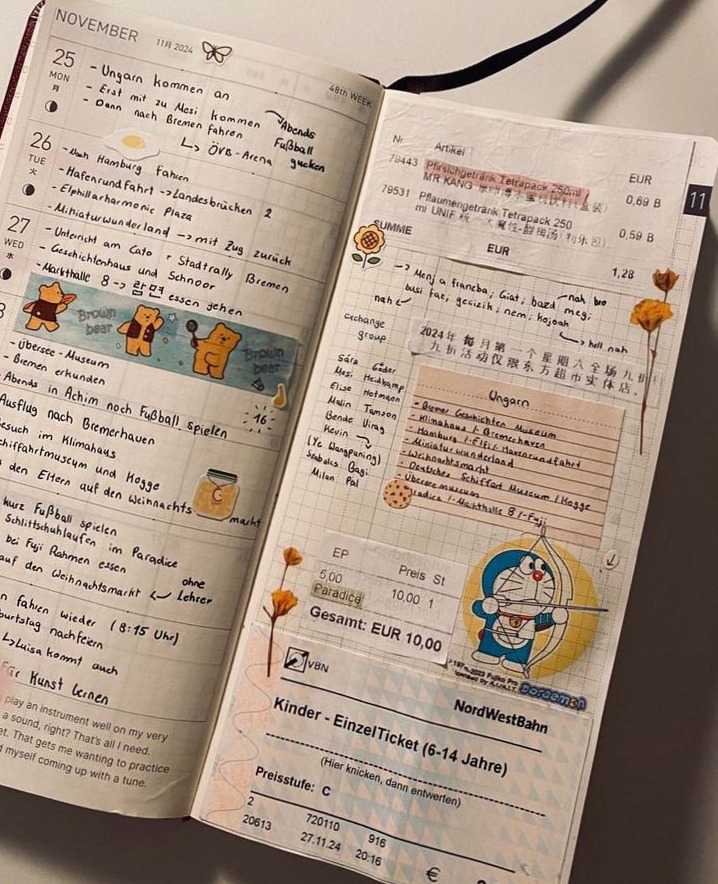 NOVEMBER
11月 2024
48th WEEK
25
MON
月
- Ungarn kommen an
- Erst mit zu Mesi kommen
- Dann nach Bremen fahren
Abends
Fußball
gucken
↳ ÖVB-Arena
26
TUE
火
- Nach Hamburg fahren
- Hafenrundfahrt → Landesbrücken 2
- Elphilharmonie Plaza
- Miniaturwunderland → mit Zug zurück
27
WED
水
- Unterricht am Cato
Stadtrally Bremen
- Geschichtenhaus und Schnoor
- Markthalle 8 → 람면 essen gehen
Brown
bear
Brown
bear
- Übersee-Museum
- Bremen erkunden
- Abends in Achim noch Fußball spielen
16
Ausflug nach Bremerhaven
Besuch im Klimahaus
Schiffahrtmuseum und Kogge
den Eltern auf den Weinnachts
markt
kurz Fußball spielen
Schlittschuhlaufen im Paradice
bei Fuji Rahmen essen
auf den Weihnachtsmarkt
ohne
Lehrer
fahren wieder (8:15 Uhr)
nachfeiern
↳ Luisa kommt auch
Für Kunst lernen
play an instrument well on my very
a sound, right? That's all I need.
That gets me wanting to practice
myself coming up with a tune.
11
Nr
Artikel
EUR
79443 Pfirsichgetränk Tetrapack 250ml
MR KANG
0,69 B
79531 Pflaumengetränk Tetrapack 250
ml UNIF 统一
0,59 B
SUMME
EUR
1,28
→ Menj a francba, Giat, bazd meg,
nah bro
busi fae, gecizik, nem, kojoah
nah
hell nah
exchange
group
2024年 每月第一个星期六全场九折
九折活动仅限东方超市实体店,
Sára Gáder
Mesi Heidkamp
Elise Hofmann
Malin Tamzon
Bende Virag
Kevin
(Ye Wangpuning)
Szabolcs Bagi
Milan Pal
Ungarn
- Bremer Geschichten Museum
- Klimahaus /- Bremerhaven
- Hamburg /-Elfi/- Havenrundfahrt
- Miniaturwunderland
- Weihnachtsmarkt
- Deutsches Schiffart Museum / Kogge
- Übersee museum
Paradice /-Markthalle 8 /-Fuji
EP
Preis St
5,00
10,00 1
Paradice
Gesamt: EUR 10,00
Doraemon
VBN
NordWestBahn
Kinder - EinzelTicket (6-14 Jahre)
(Hier knicken, dann entwerten)
Preisstufe: C
2
720110
916
20613
27.11.24
20:16
€